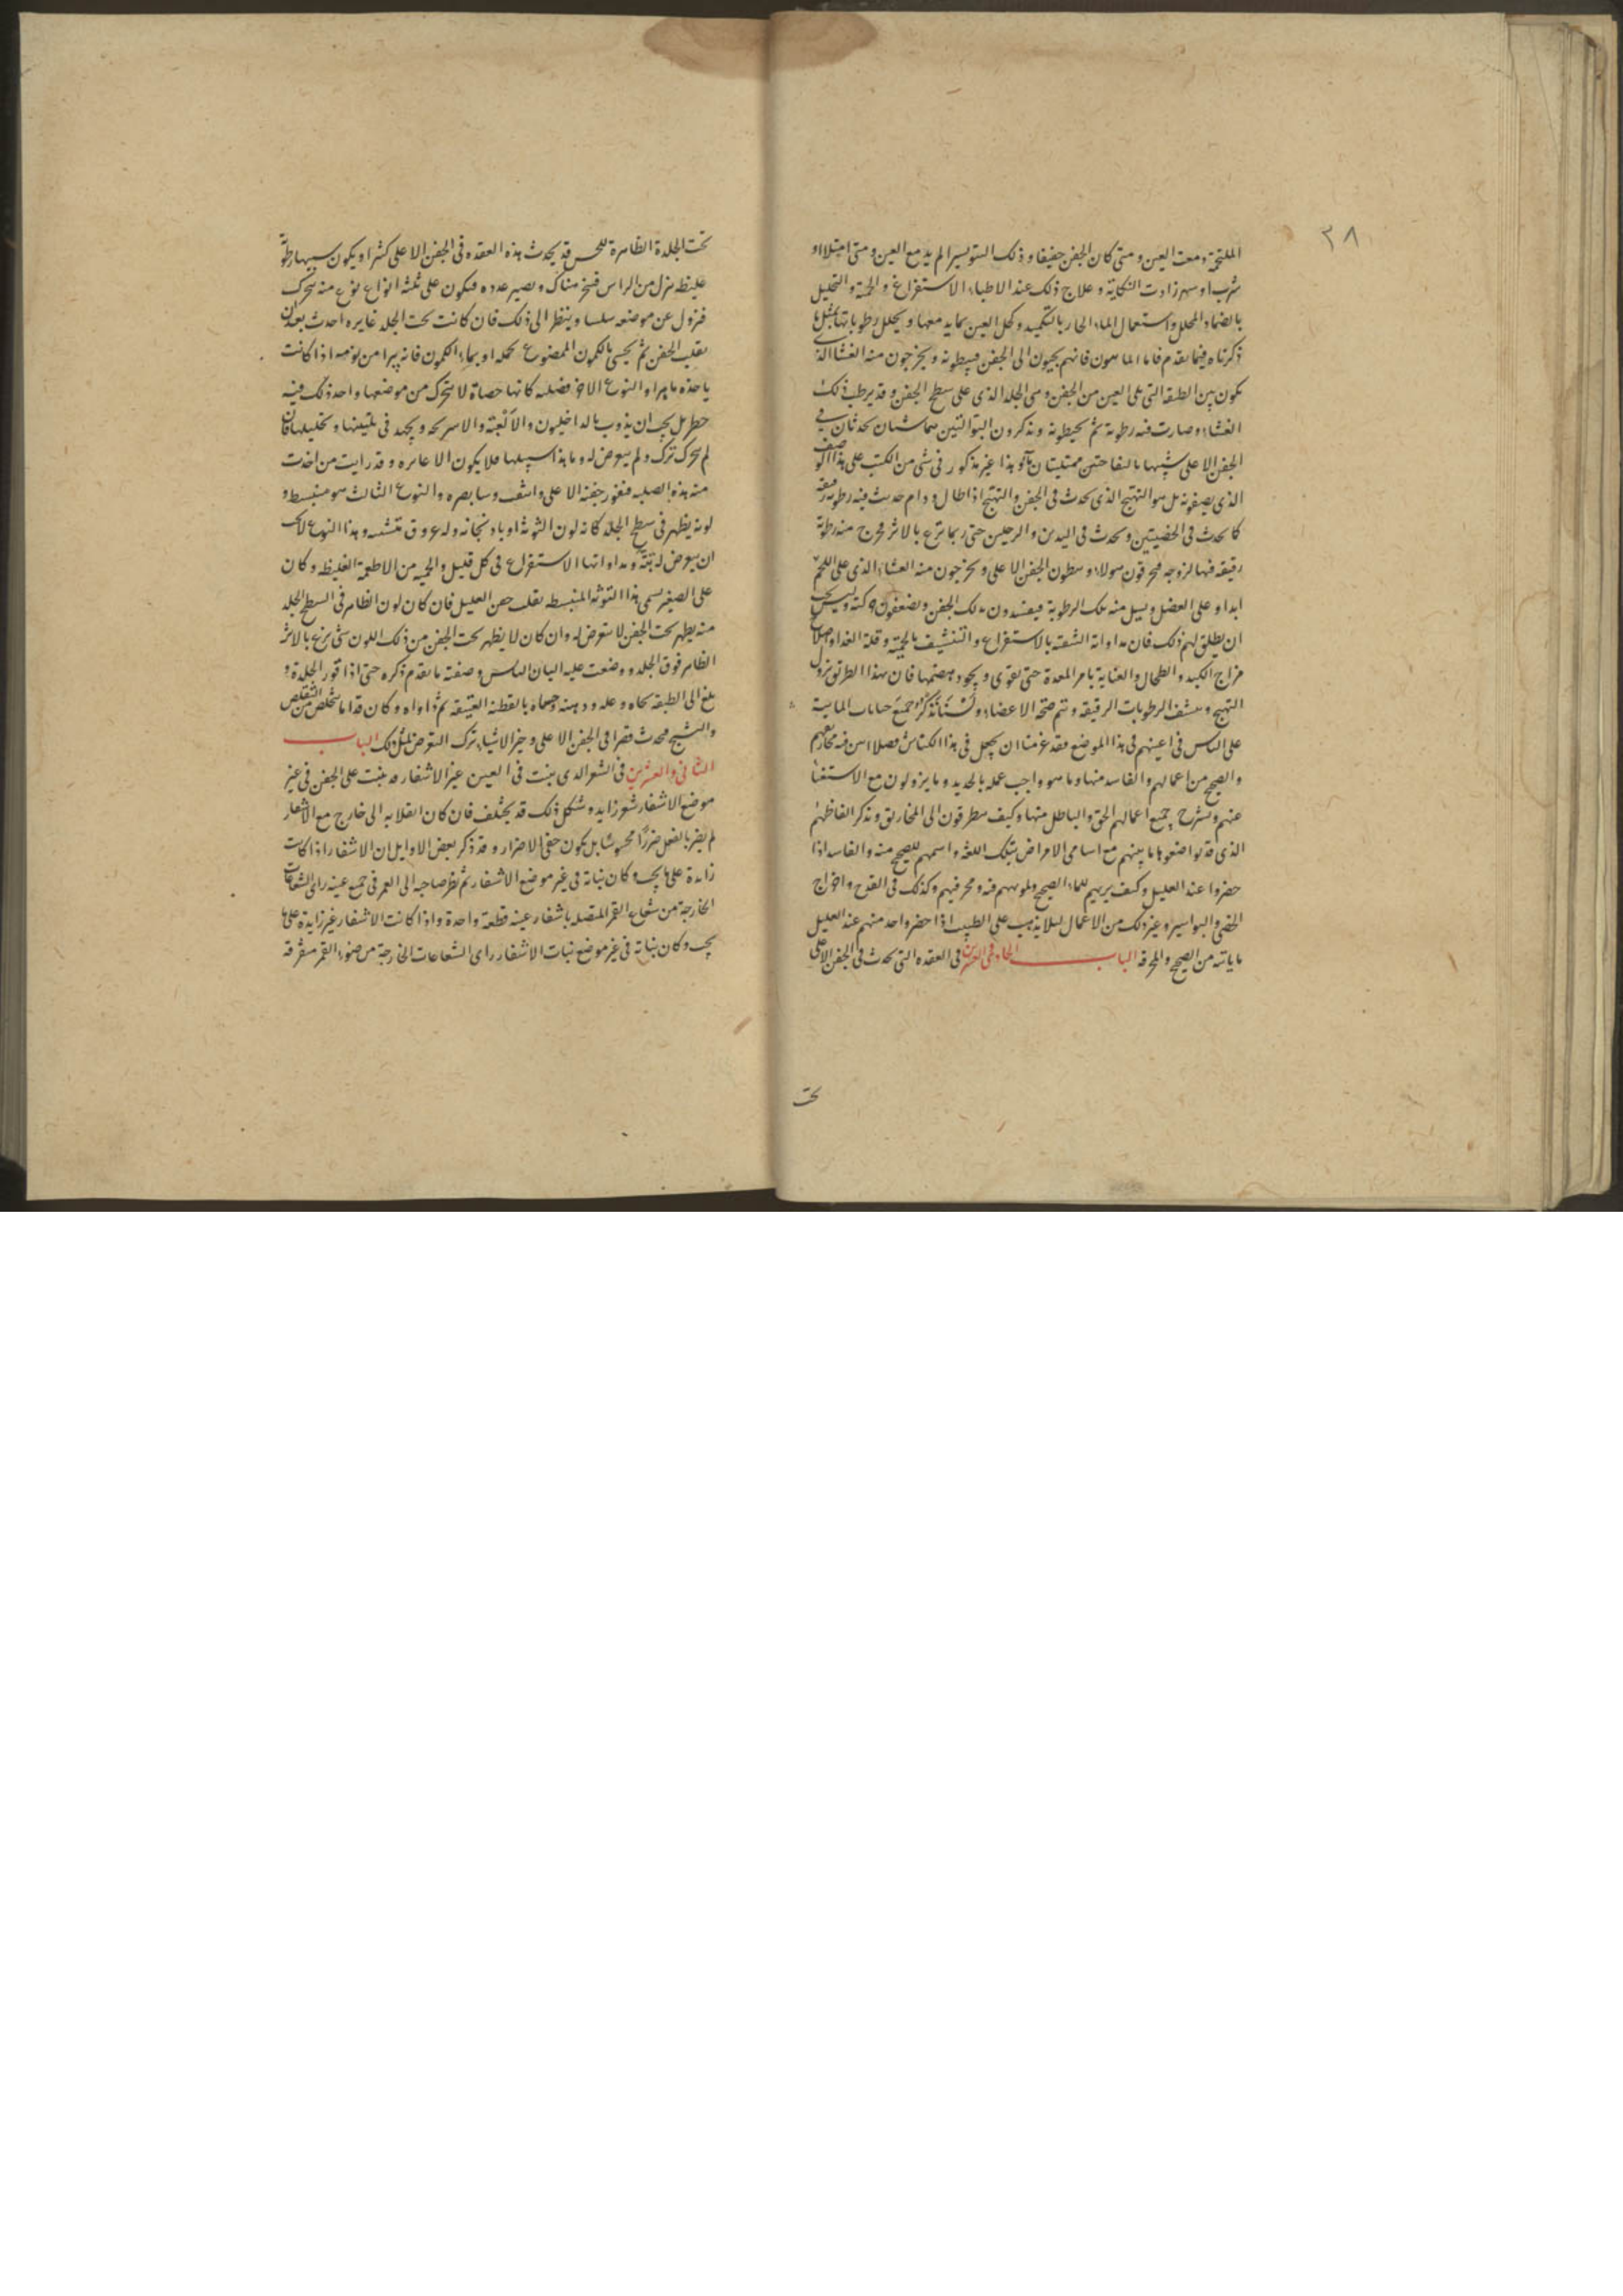 ٣٨
الملتحمة دمعت العين ومتى كان الجفن خفيفا وذلك النتو يسيرا لم يدمع العين ومتى امتلا او
شرب او سهر زادت النكاية وعلاج ذلك عند الاطباء الاستفراغ والحمية والتحليل
بالضماد المحلل واستعمال الماء الحار بالتكميد وكحل العين بما يدمعها ويحلل رطوباتها بمثل ما
ذكرناه فيما تقدم فاما فانهم يجيون الى الجفن فيبطونه ويخرجون منه الغشا الذى
يكون بين الطبقة التى تلى العين من الجفن ومن الجلد الذى على سطح الجفن وقد يرطب ذلك
الغشاء وصارت فيه رطوبة ثم يخيطونه ويذكرون ان التوالتين تحدثان فى
الجفن الاعلى شبيها بالنفاختين ممتليتان وهذا غير مذكور فى شى من الكتب على هذا الوصف
الذى يصفونه بل هو التهيج الذى يحدث فى الجفن والتهيج اذا طال ودام حدثت فيه رطوبة رقيقة
كما تحدث فى الخصيتين وتحدث فى اليدين والرجلين حتى ربما بزغ بالابر فخرج منه رطوبة
رقيقة فيها لزوجة فيخرقون هولاء ويبطون الجفن الاعلى ويخرجون منه الغشاء الذى على اللحم
ابدا وعلى العضل ويسيل منه تلك الرطوبة فيفسدون بذلك الجفن ويضعفون حركته وليس يجب
ان يطلق لهم ذلك فان مداواة الشفة بالاستفراغ والتنشيف بالحمية وقلة الغدا واصلاح
مزاج الكبد والطحال والعناية بامر المعدة حتى تقوى ويجود هضمها فان بهذا الطريق يزول
التهيج وينشف الرطوبات الرقيقة وتتم صحة الاعضاء ولسنا نذكر جميع
على الناس فى اعينهم فى هذا الموضع فقد عزمنا ان نجعل فى هذا الكناش فصلا نبين فيه مخاريقهم
والصحيح من اعمالهم والفاسد منها وما هو واجب عمله بالحديد وما يزولون مع الاستغنا
عنهم ونشرح جميع اعمالهم الحق والباطل منها وكيف يتطرقون الى المخاريق ونذكر الفاظهم
الذى قد تواضعوها ما بينهم مع اسامى الامراض بتلك اللغة واسمهم للصحيح منه والفاسد اذا
حضروا عند العليل وكيف يريهم الماء الصحيح وتمويههم فيه ومخرفتهم وكذلك فى القدح واخراج
الحصى والبواسير وغير ذلك من الاعمال ليلا يذهب على الطبيب اذا حضر واحد منهم عند العليل
ما ياتيه من الصحيح والمخرقة الباب الحادى والعشرين فى العقده التى تحدث فى الجفن الاعلى
تحت
تحت الجلدة الظاهرة للحس قد يحدث هذه العقده فى الجفن الاعلى كثيرا ويكون سببها رطوبة
غليظ ينزل من الراس فيتحجر هناك ويصير غدده فيكون على ثلثة انواع نوع منه يتحرك
فيزول عن موضعه سلسا وينظر الى ذلك فان كانت تحت الجلد غايره احدث بعد ان
يقلب الجفن ثم يحسى بالكمون الممضوغ كمله او بماء الكمون فانه يبرا من يومه اذا كانت
ياخذه ماهرا والنوع الاخر صلبه كانها حصاة لا يتحرك من موضعها واخذ ذلك فيه
خطر بل يجب ان يذوب بالداخليون والالعبة والاسرنجه ويجهد فى تليينها وتحليلها فان
لم يتحرك ترك ولم يتعرض له وما هذا سبيلها فلا يكون الا غايره وقد رايت من اخذت
منه هذه الصلبه فتغور جفنه الاعلى وانشف وسا بصره والنوع الثالث هو منبسط و
لونه يظهر فى سطح الجلد كانه لون التوثة او باذنجانة وله عروق منتشبه وهذا النوع لا يجب
ان يتعرض له بتة ومداواتها الاستفراغ فى كل قليل والحمية من الاطعمة الغليظه وكان
على الصغير يسمى هذا التوثه المنبسط يقلب جفن العليل فان كان لون الظاهر فى السطح الجلد
منه يظهر تحت الجفن لا يتعرض له وان كان لا يظهر تحت الجفن من ذلك اللون شى بزغ بالابر
الظاهر فوق الجلد ووضعت عليه اللبان اليابس وصفته ما تقدم ذكره حتى اذا قور الجلدة و
بلغ الى الطبقه نحاه وعلاه ودهنه وحماه بالقطنة العتيقه ثم داواه وكان قد اما تخلص من التقلص
والتشنج فيحدث قصرا فى الجفن الاعلى وخير الاشياء ترك التعرض لمثل ذلك الباب
الثانى والعشرين فى الشعر الذى ينبت فى العين غير الاشفار قد ينبت على الجفن فى غير
موضع الاشفار شعر زايد وشكل ذلك قد يختلف فان كان انقلابه الى خارج مع الاشفار
لم يضر بالفعل ضررا محسوسا بل يكون خفى الاضرار وقد ذكر بعض الاوايل ان الاشفار اذا كانت
زايدة على ما يجب وكان نباته فى غير موضع الاشفار ثم نظر صاحبه الى القمر فى جميع عينه راى الشعاعات
الخارجة من شعاع القمر المتصله باشفار عينه قطعة واحدة واذا كانت الاشفار غير زايدة على ما
يجب وكان نباته فى غير موضع نبات الاشفار راى الشعاعات الخارجة من ضوء القمر متفرقة